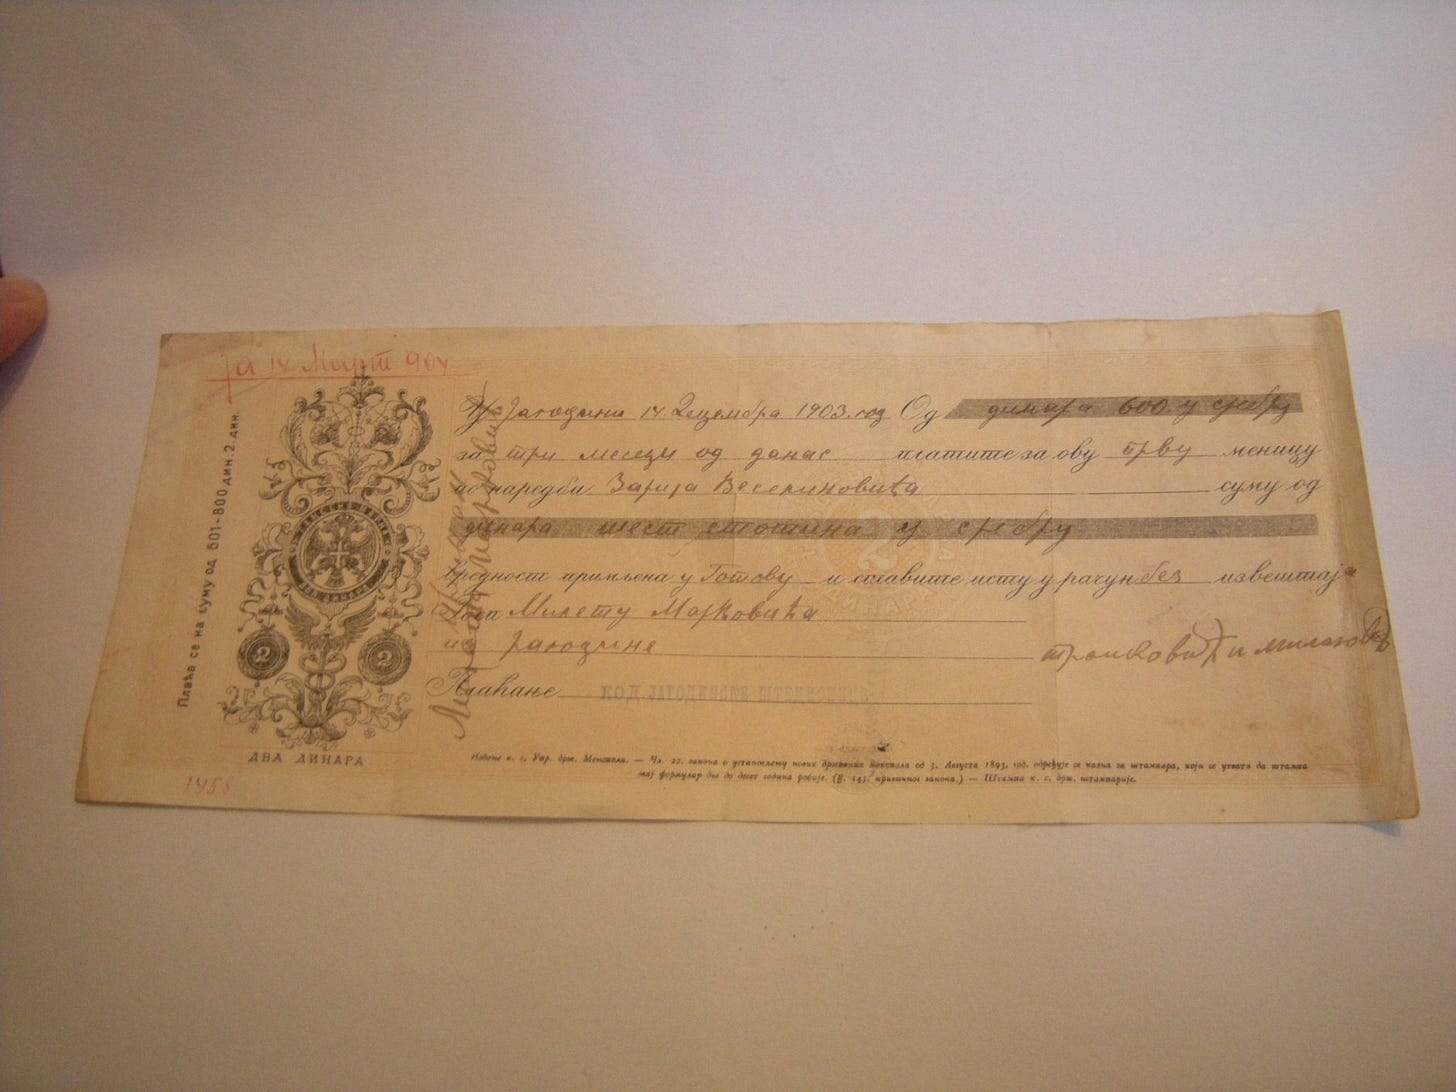 За 14 Март 904
Плаћа се на суму од 501-800 дин. 2. дин.
2 2
ДВА ДИНАРА
1458
У Јагодини 14. Децембра 1903. год Од динара 600 у сребру
за три месеца од данас платите за ову прву меницу
по наредби Зарија Веселиновића суму од
динара шест стотина у сребру
вредност примљена у Готову и ставите исту у рачун без извештаја
Госп Милету Марковића
из Јагодине
Плаћање КОД ЈАГОДИНСКЕ ШТЕДИОНИЦЕ
Примам
Милета Марковић
Издање к. с. Упр. држ. Монопола. — Чл. 22. закона о установљењу нових државних монопола од 3. Августа 1893. год. одређује се казна за штампара, који се ухвати да штампа
овај формулар до десет година робије. (§. 145. кривичног закона.) — Штампа к. с. држ. штампарије.